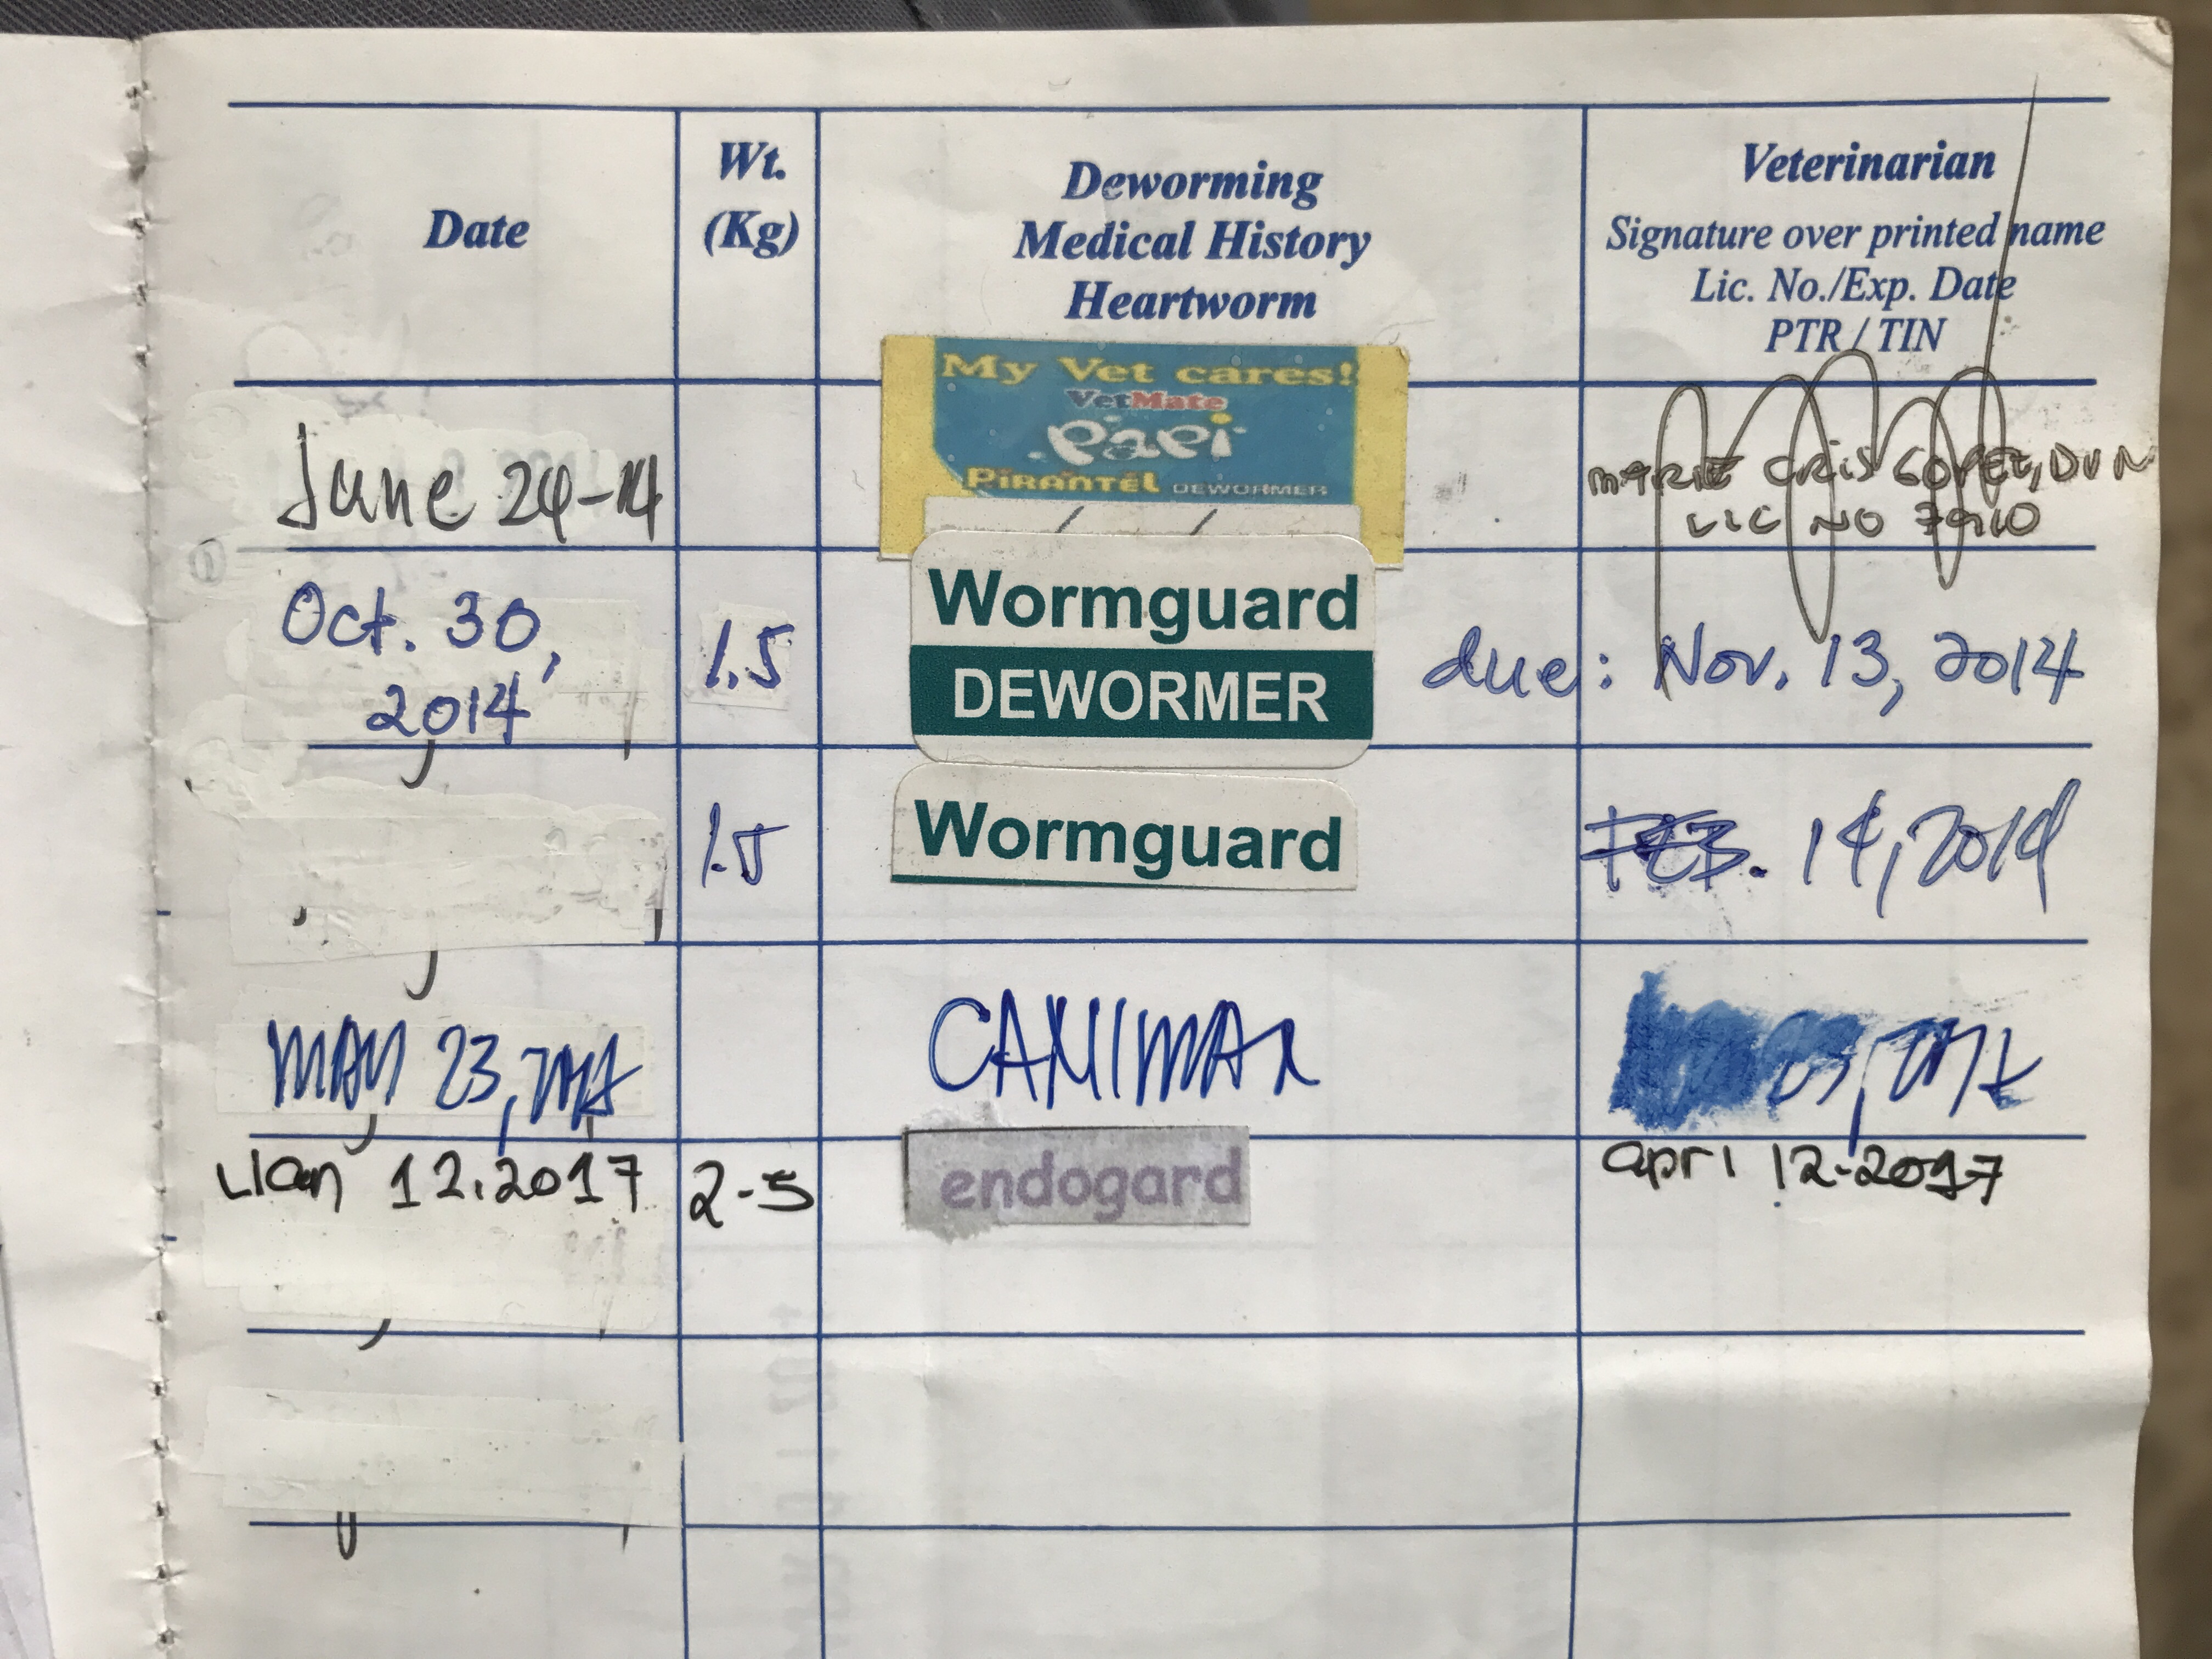 Date
Wt.
(Kg)
Deworming
Medical History
Heartworm
Veterinarian
Signature over printed name
Lic. No./Exp. Date
PTR / TIN
June 24-14
My Vet cares!
VetMate
Papi
PIRANTEL DEWORMER
MARIE CRIS DVM
LIC NO 7910
Oct. 30,
2014
1.5
Wormguard
DEWORMER
due: Nov. 13, 2014
1.5
Wormguard
14, 2014
MAY 23,
CANIMAX
Jan 12.2017
2-5
endogard
apri 12-2017